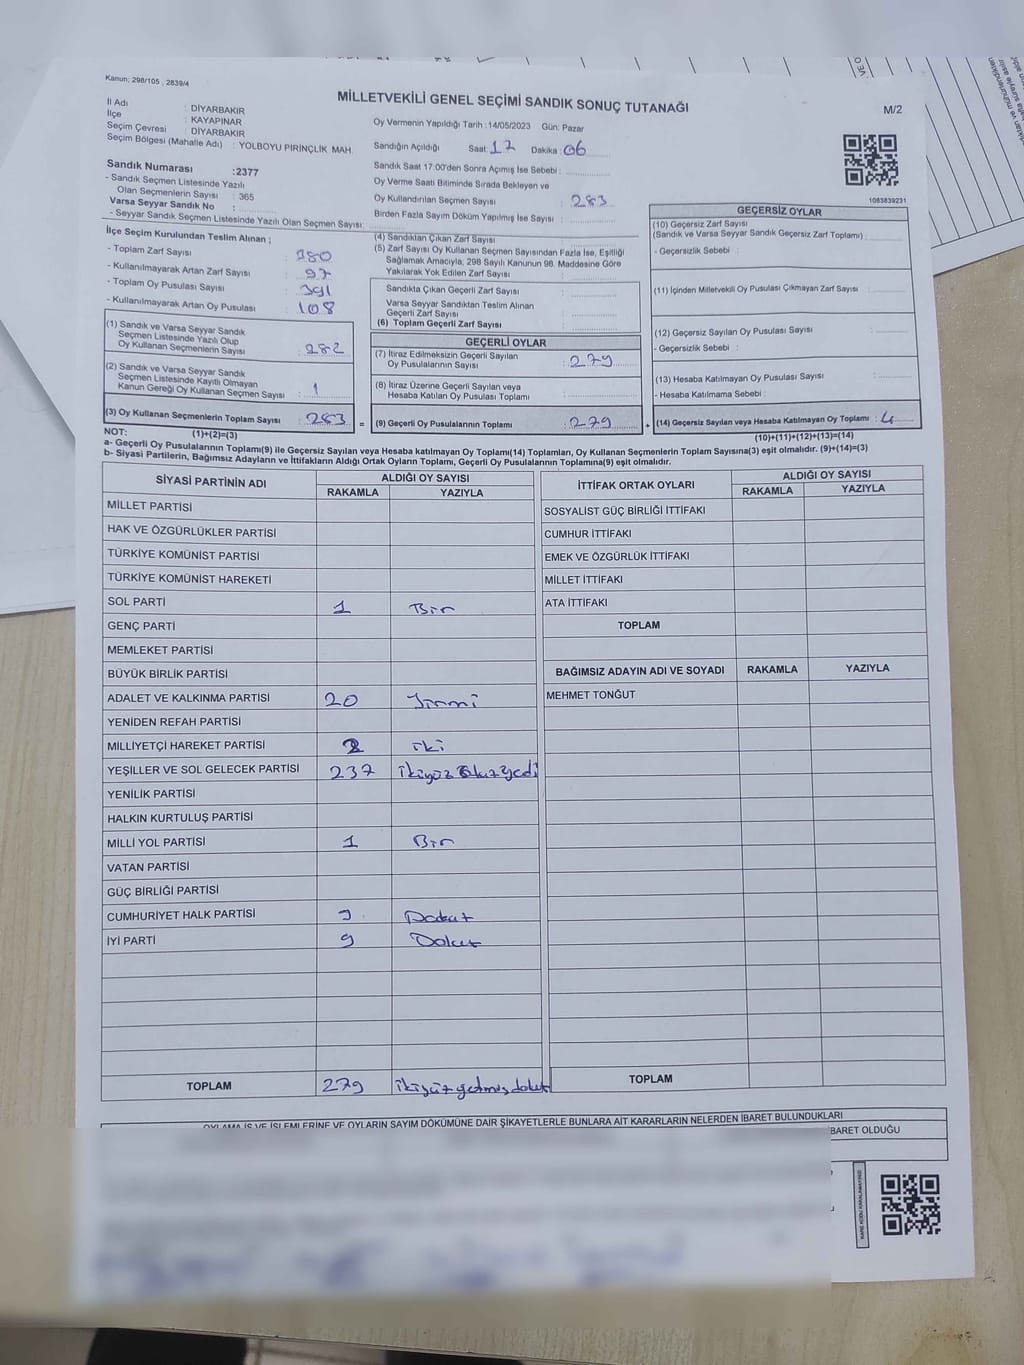 Kanun; 298/105 , 2839/4
MİLLETVEKİLİ GENEL SEÇİMİ SANDIK SONUÇ TUTANAĞI
M/2
İl Adı : DİYARBAKIR
İlçe : KAYAPINAR
Seçim Çevresi : DİYARBAKIR
Seçim Bölgesi (Mahalle Adı) : YOLBOYU PİRİNÇLİK MAH.
Sandık Numarası :2377
- Sandık Seçmen Listesinde Yazılı
Olan Seçmenlerin Sayısı : 365
Varsa Seyyar Sandık No :
- Seyyar Sandık Seçmen Listesinde Yazılı Olan Seçmen Sayısı:
Oy Vermenin Yapıldığı Tarih :14/05/2023 Gün: Pazar
Sandığın Açıldığı Saat: 17 Dakika: 06
Sandık Saat 17:00'den Sonra Açımış İse Sebebi :
Oy Verme Saati Bitiminde Sırada Bekleyen ve
Oy Kullandırılan Seçmen Sayısı : 283
Birden Fazla Sayım Döküm Yapılmış İse Sayısı :
1083839231
İlçe Seçim Kurulundan Teslim Alınan ;
- Toplam Zarf Sayısı : 380
- Kullanılmayarak Artan Zarf Sayısı : 97
- Toplam Oy Pusulası Sayısı : 391
- Kullanılmayarak Artan Oy Pusulası : 108
(1) Sandık ve Varsa Seyyar Sandık
Seçmen Listesinde Yazılı Olup
Oy Kullanan Seçmenlerin Sayısı : 282
(2) Sandık ve Varsa Seyyar Sandık
Seçmen Listesinde Kayıtlı Olmayan
Kanun Gereği Oy Kullanan Seçmen Sayısı : 1
(3) Oy Kullanan Seçmenlerin Toplam Sayısı : 283
(4) Sandıktan Çıkan Zarf Sayısı :
(5) Zarf Sayısı Oy Kullanan Seçmen Sayısından Fazla İse, Eşitliği
Sağlamak Amacıyla, 298 Sayılı Kanunun 98. Maddesine Göre
Yakılarak Yok Edilen Zarf Sayısı :
Sandıkta Çıkan Geçerli Zarf Sayısı :
Varsa Seyyar Sandıktan Teslim Alınan
Geçerli Zarf Sayısı :
(6) Toplam Geçerli Zarf Sayısı :
GEÇERLİ OYLAR
(7) İtiraz Edilmeksizin Geçerli Sayılan
Oy Pusulalarının Sayısı : 279
(8) İtiraz Üzerine Geçerli Sayılan veya
Hesaba Katılan Oy Pusulası Toplamı :
= (9) Geçerli Oy Pusulalarının Toplamı : 279
GEÇERSİZ OYLAR
(10) Geçersiz Zarf Sayısı
(Sandık ve Varsa Seyyar Sandık Geçersiz Zarf Toplamı) :
- Geçersizlik Sebebi :
(11) İçinden Milletvekili Oy Pusulası Çıkmayan Zarf Sayısı :
(12) Geçersiz Sayılan Oy Pusulası Sayısı :
- Geçersizlik Sebebi :
(13) Hesaba Katılmayan Oy Pusulası Sayısı :
- Hesaba Katılmama Sebebi :
+ (14) Geçersiz Sayılan veya Hesaba Katılmayan Oy Toplamı : 4
NOT: (1)+(2)=(3) (10)+(11)+(12)+(13)=(14)
a- Geçerli Oy Pusulalarının Toplamı(9) ile Geçersiz Sayılan veya Hesaba katılmayan Oy Toplamı(14) Toplamları, Oy Kullanan Seçmenlerin Toplam Sayısına(3) eşit olmalıdır. (9)+(14)=(3)
b- Siyasi Partilerin, Bağımsız Adayların ve İttifakların Aldığı Ortak Oyların Toplamı, Geçerli Oy Pusulalarının Toplamına(9) eşit olmalıdır.
SİYASİ PARTİNİN ADI ALDIĞI OY SAYISI
RAKAMLA YAZIYLA
MİLLET PARTİSİ
HAK VE ÖZGÜRLÜKLER PARTİSİ
TÜRKİYE KOMÜNİST PARTİSİ
TÜRKİYE KOMÜNİST HAREKETİ
SOL PARTİ 1 Bir
GENÇ PARTİ
MEMLEKET PARTİSİ
BÜYÜK BİRLİK PARTİSİ
ADALET VE KALKINMA PARTİSİ 20 Yirmi
YENİDEN REFAH PARTİSİ
MİLLİYETÇİ HAREKET PARTİSİ 2 iki
YEŞİLLER VE SOL GELECEK PARTİSİ 237 ikiyüz otuz yedi
YENİLİK PARTİSİ
HALKIN KURTULUŞ PARTİSİ
MİLLİ YOL PARTİSİ 1 Bir
VATAN PARTİSİ
GÜÇ BİRLİĞİ PARTİSİ
CUMHURİYET HALK PARTİSİ 9 Dokuz
İYİ PARTİ 9 Dokuz
TOPLAM 279 ikiyüz yetmiş dokuz
İTTİFAK ORTAK OYLARI ALDIĞI OY SAYISI
RAKAMLA YAZIYLA
SOSYALİST GÜÇ BİRLİĞİ İTTİFAKI
CUMHUR İTTİFAKI
EMEK VE ÖZGÜRLÜK İTTİFAKI
MİLLET İTTİFAKI
ATA İTTİFAKI
TOPLAM
BAĞIMSIZ ADAYIN ADI VE SOYADI RAKAMLA YAZIYLA
MEHMET TONĞUT
TOPLAM
OYLAMA İŞ VE İŞLEMLERİNE VE OYLARIN SAYIM DÖKÜMÜNE DAİR ŞİKAYETLERLE BUNLARA AİT KARARLARIN NELERDEN İBARET BULUNDUKLARI
İBARET OLDUĞU